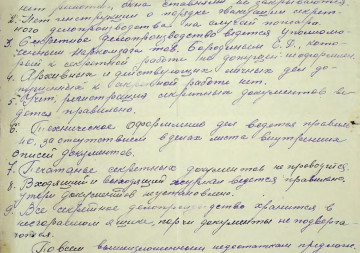 нет решеток, окна ставнями не закрываются.
2. Нет инструкции о порядке эвакуации секрет-
ного делопроизводства на случай пожара.
3. Секретное делопроизводство ведется уполномо-
ченным Наркомзага тов. Бородиным С.Д., кото-
рый к секретной работе по допущен и оформлен.
4. Архивных и действующих личных дел до-
пущенных к секретной работе нет.
5. Учет, регистрация секретных документов ве-
дется правильно.
6. Техническое оформление дел ведется правиль-
но, за отсутствием в делах листа внутренних
описей документов.
7. Печатание секретных документов не проводится.
8. Входящий и исходящий журнал ведется правильно,
утери документов не установлено.
9. Все секретное делопроизводство хранится в
несгораемом ящике, порчи документы не подверга-
ются.
По всем вышеизложенным недостаткам предлага-